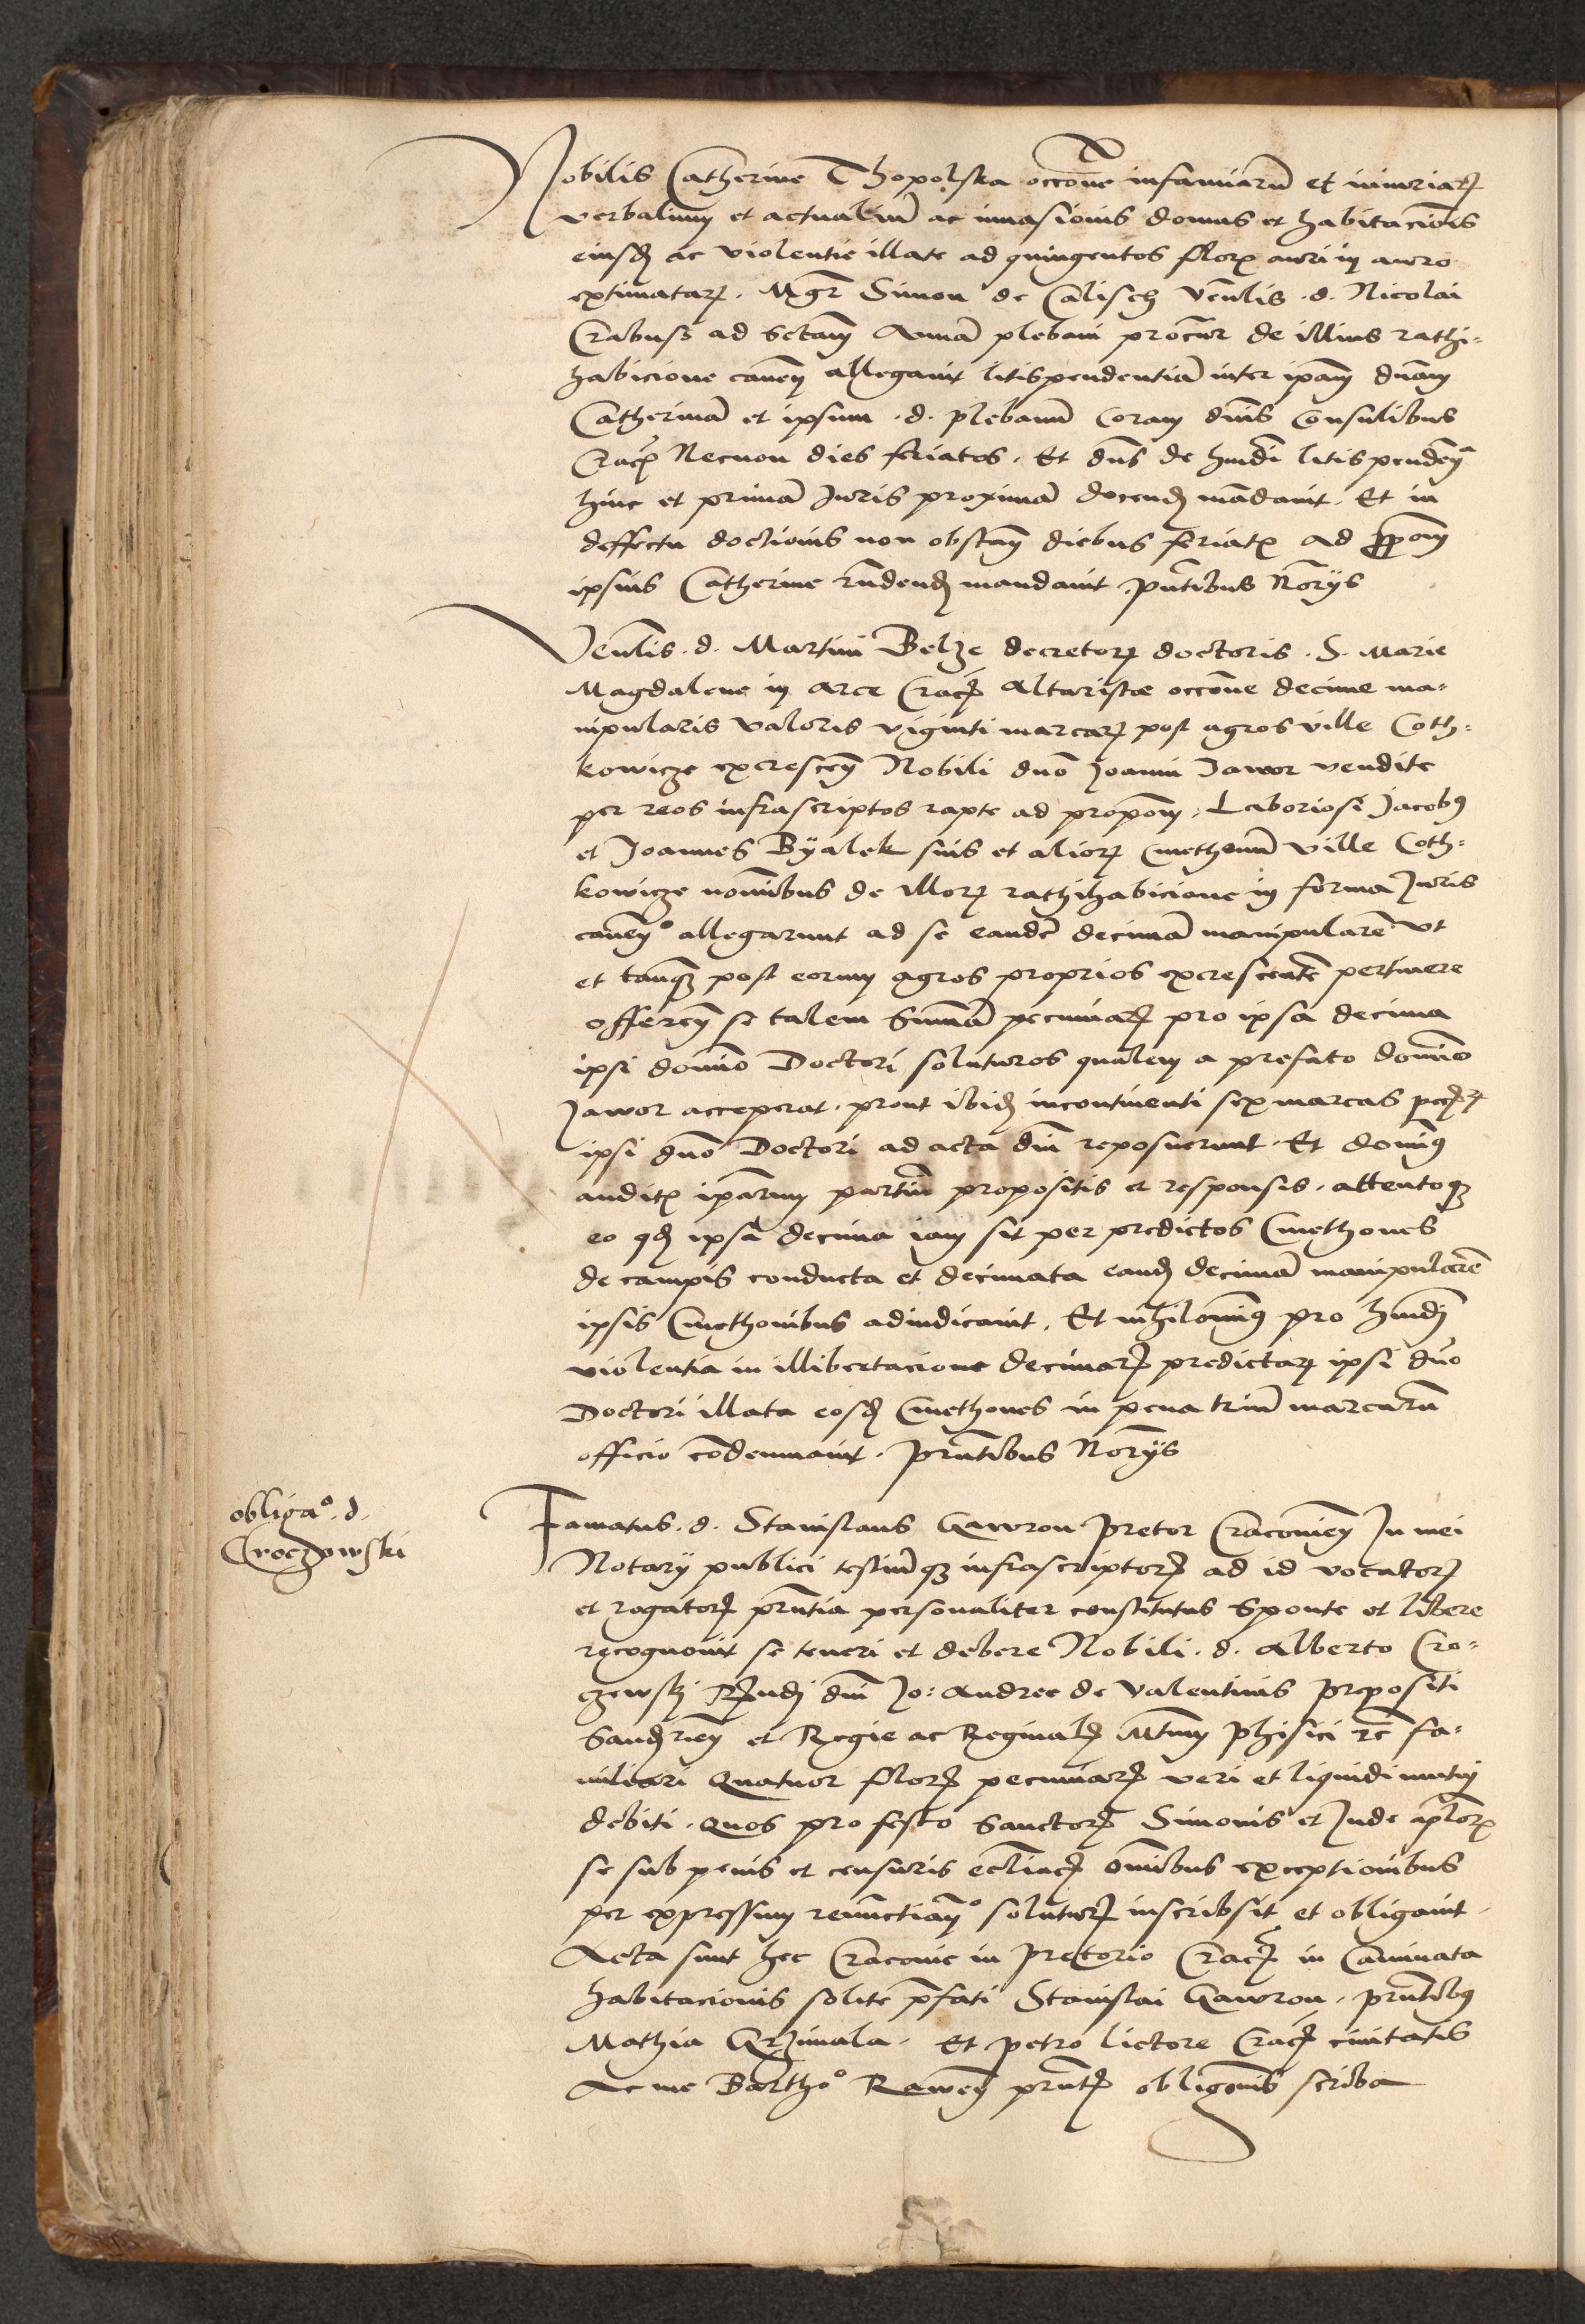 Nobilis Catherine Thopolska occone infamiarũ et iniuriarꝝ
verbalium et actualiũ ac inuasionis domus et habitacionis
eiusdꝫ ac violentie illate ad quingentos florꝝ auri in auro
extimatarꝝ. Mgr̃ Simon de Calisch Venlis .d. Nicolai
Crabuss ad Sctam Annã plebani procur de illius rathi-
habicione cauen allegauit litispendentiã inter ipam dnam
Catherinã et ipsum .d. plebanũ coram dnis Consulibus
Cracꝫ Necnon dies feriatos. Et dns de hmdi litispenden
hinc et primã Juris proximã docendꝫ mãdauit. Et in
deffectu doctionis non obstan diebus feriatꝫ ad ppom
ipsius Catherine rñdendꝫ mandauit. pñtibus Noriis
Venlis .d. Martini Belze decretorꝝ doctoris .S. Marie
Magdalene in arce Cracꝫ Altaristæ occone decime ma-
nipularis valoris viginti marcarꝝ post agros ville Coth-
kowicze excrescen Nobili dno Joanni Jawor vendite
per reos infrascriptos rapte ad propom. Laboriosi Jacobꝰ
et Joannes Byalek suis et aliorꝝ Cmethonũ ville Coth-
kowicze noĩbus de illorꝝ rathihabicione in forma Juris
cauen° allegarunt ad se eandẽ decimã manipularẽ vt
et tanqꝫ post eorum agros proprios excrescentẽ pertinere
offeren se talem Sum̃ã pecuniarꝝ pro ipsa decima
ipsi domino Doctori soluturos qualem a prefato domino
Jawor acceperat. prout ibidꝫ incontinenti sex marcas peccꝫ
ipsi dno Doctori ad acta dni reposuerunt. Et dominꝰ
auditꝫ iparum partiũ propositis et responsis. attentoqꝫ
eo qdꝫ ipsa decima iam sit per predictos Cmethones
de campis conducta et decimata eandꝫ decimã manipularẽ
ipsis Cmethonibus adiudicauit. Et nihilominꝰ pro hmdi
violentia in illibertacione decimarꝝ predictarꝝ ipsi dño
Doctori illata eosdꝫ Cmethones in pena triũ marcarũ
officio cõdemnauit. Pñtibus Noriis
obliga°. d.
Croczowski
Famatus .d. Stanislaus Gawron Pretor Cracouien In mei
Notarii publici testiumqꝫ infrascriptorꝝ ad id vocatorꝝ
et rogatorꝝ pñtia personaliter constitutus Sponte et libere
recognouit se teneri et debere Nobili .d. Alberto Cro-
czewskj Rndj dni Jo: Andree de Valentinis Prepositi
Sandꝫrien et Regie ac Reginalꝫ Mtum Phisici rc̃ fa-
miliari Quatuor florꝝ pecuniarꝝ veri et liquidi mutui
debiti. Quos pro festo Sanctorꝝ Simonis et Jude aplorꝝ
se sub penis et censuris ecliacꝫ oĩbus exceptionibus
per expressum renunctian° soluturꝝ inscribsit et obligauit.
Acta sunt hec Cracouie in Pretorio Cracꝫ in Caminata
habitacionis solite pfati Stanislai Gawron. pñtibꝰ
Mathia Grzimala. Et petro lictore Cracꝫ ciuitatis
Ac me Bartho° Rawen pñtꝫ obligonis scriba